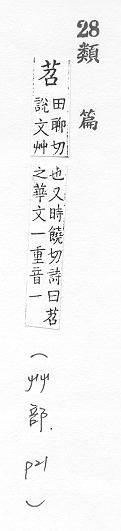 28類篇
苕
田聊切
說文艸
也又時饒切詩曰苕
之華文一重音一
(艸部. p21)